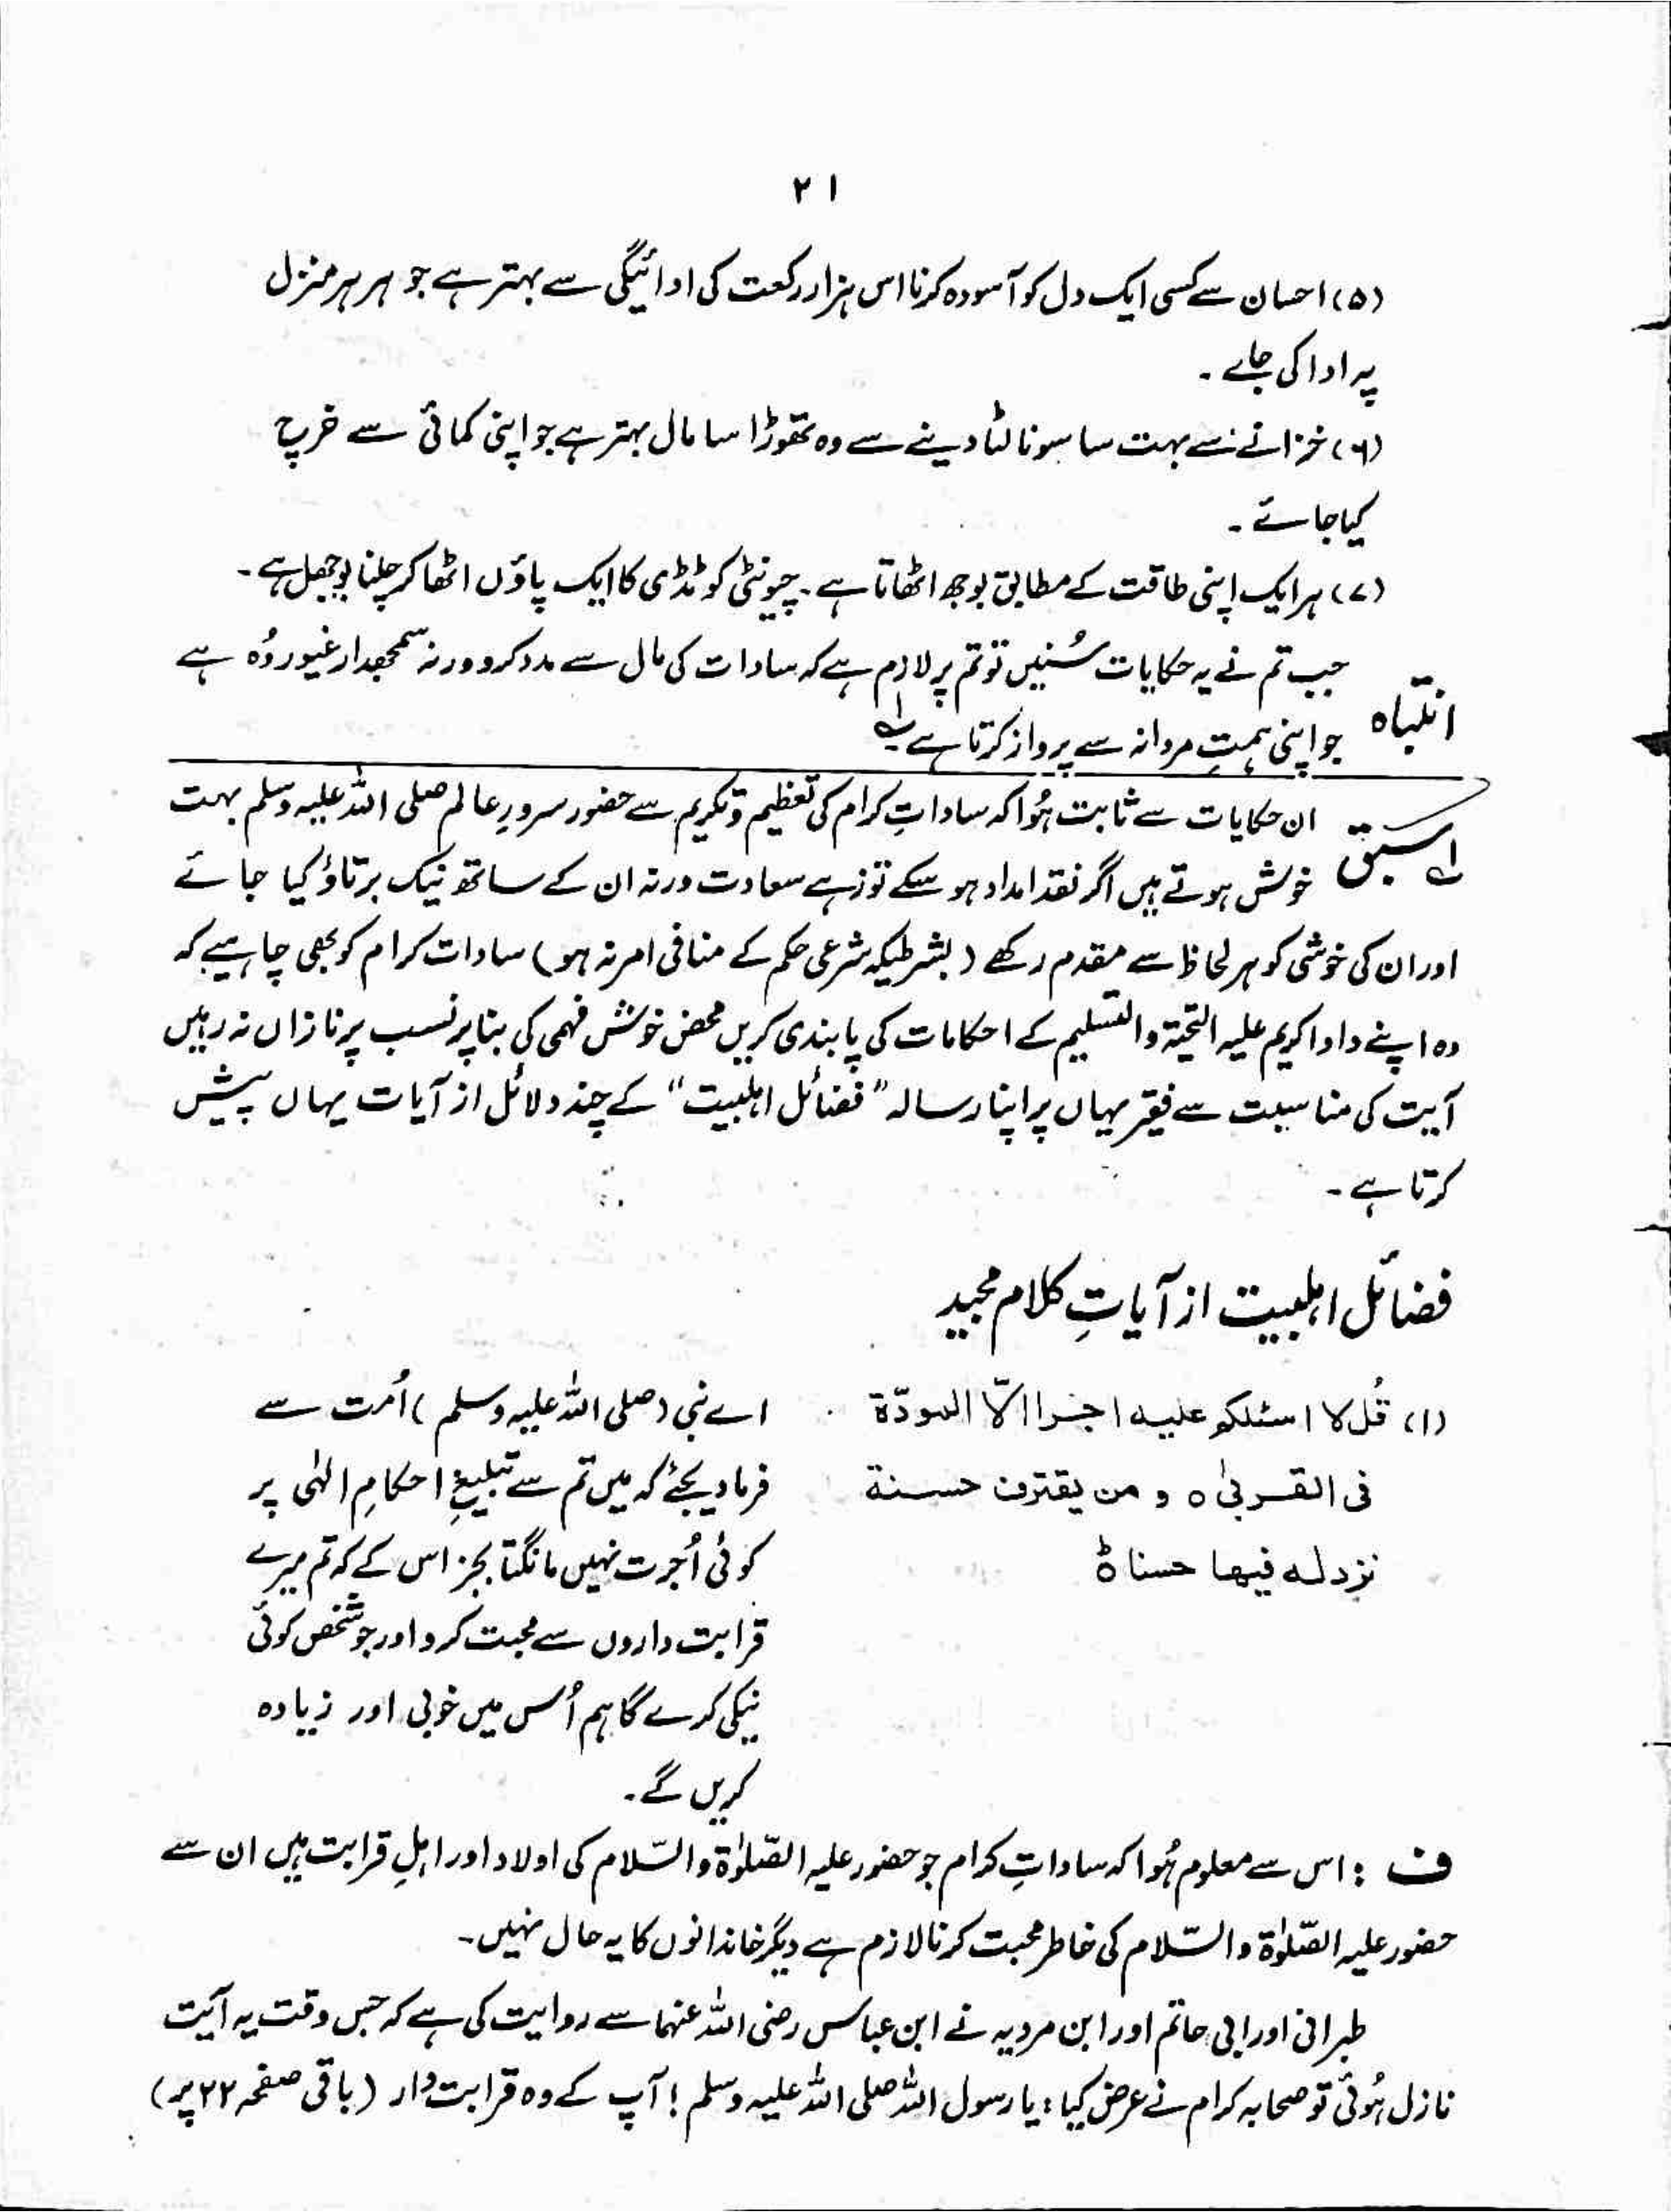 ۲۱
(۵) احسان سے کسی ایک دل کو آسودہ کرنا اس ہزار رکعت کی ادائیگی سے بہتر ہے جو ہر ہر منزل
پر ادا کی جاے ۔
(۶) خزانے سے بہت سا سونا لٹا دینے سے وہ تھوڑا سا مال بہتر ہے جو اپنی کمائی سے خرچ
کیا جائے ۔
(۷) ہر ایک اپنی طاقت کے مطابق بوجھ اٹھاتا ہے ۔ چیونٹی کو ٹڈی کا ایک پاؤں اٹھا کر چلنا بوجھل ہے ۔
انتباہ جب تم نے یہ حکایات سُنیں تو تم پر لازم ہے کہ سادات کی مال سے مدد کرو ورنہ سمجھدار غیور وُہ ہے
جو اپنی ہمتِ مردانہ سے پرواز کرتا ہے ۔ لے
لے سبق ان حکایات سے ثابت ہُوا کہ ساداتِ کرام کی تعظیم و تکریم سے حضور سرورِ عالم صلی اللہ علیہ وسلم بہت
خوش ہوتے ہیں اگر نقد امداد ہو سکے تو زہے سعادت ورنہ ان کے ساتھ نیک برتاؤ کیا جائے
اور ان کی خوشی کو ہر لحاظ سے مقدم رکھے (بشرطیکہ شرعی حکم کے منافی امر نہ ہو) سادات کرام کو بھی چاہیے کہ
وہ اپنے دادا کریم علیہ التحیۃ والتسلیم کے احکامات کی پابندی کریں محض خوش فہمی کی بنا پر نسب پر نازاں نہ رہیں
آیت کی مناسبت سے فقیر یہاں پر اپنا رسالہ "فضائل اہلبیت" کے چند دلائل از آیات یہاں پیش
کرتا ہے ۔
فضائل اہلبیت از آیاتِ کلام مجید
(۱) قُل لا اسئلکو علیہ اجرا الّا المودّۃ
فی القربیٰ ہ و من یقترف حسنۃ
نزد لہ فیھا حسناہ ط
اے نبی (صلی اللہ علیہ وسلم) اُمت سے
فرما دیجئے کہ میں تم سے تبلیغِ احکامِ الٰہی پر
کوئی اُجرت نہیں مانگتا بجز اس کے کہ تم میرے
قرابت داروں سے محبت کرو اور جو شخص کوئی
نیکی کرے گا ہم اُس میں خوبی اور زیادہ
کریں گے ۔
ف : اس سے معلوم ہُوا کہ ساداتِ کرام جو حضور علیہ الصّلوٰۃ والسّلام کی اولاد اور اہلِ قرابت ہیں ان سے
حضور علیہ الصّلوٰۃ والسّلام کی خاطر محبت کرنا لازم ہے دیگر خاندانوں کا یہ حال نہیں ۔
طبرانی اور ابی حاتم اور ابن مردیہ نے ابن عباس رضی اللہ عنہما سے روایت کی ہے کہ جس وقت یہ آئیت
نازل ہُوئی تو صحابہ کرام نے عرض کیا : یا رسول اللہ صلی اللہ علیہ وسلم ! آپ کے وہ قرابت دار (باقی صفحہ ۲۲ پر)